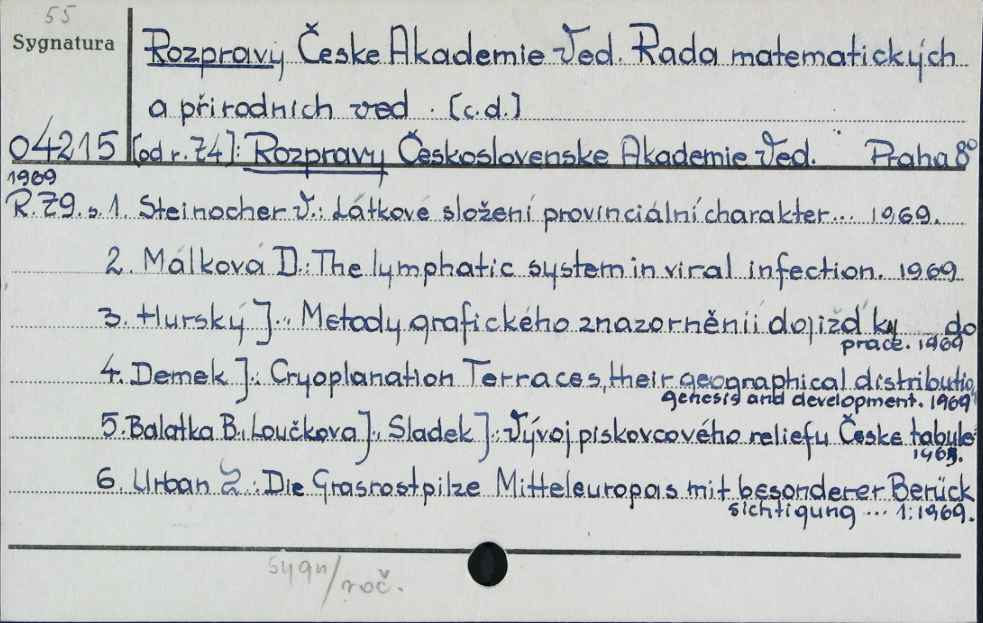 55
Sygnatura
Rozpravy Česke Akademie Ved. Rada matematických
a přirodních ved. [c.d.]
04215 [od r. 74]: Rozpravy Československe Akademie Ved. Praha 8°
1969
R. 79. s. 1. Steinocher V.: Látkové složení provinciální charakter... 1969.
2. Málková D.: The lymphatic system in viral infection. 1969
3. Hurský J.: Metody grafického znazorněnii dojižd'ky do
prace. 1969
4. Demek J.: Cryoplanation Terraces, their geographical distributio,
genesis and development. 1969
5. Balatka B., Loučkova J., Sladek J.: Vývoj piskovcového reliefu Česke tabule
1969.
6. Urban Z.: Die Grasrostpilze Mitteleuropas mit besonderer Berück
sichtigung ... 1: 1969.
sygn/roč.